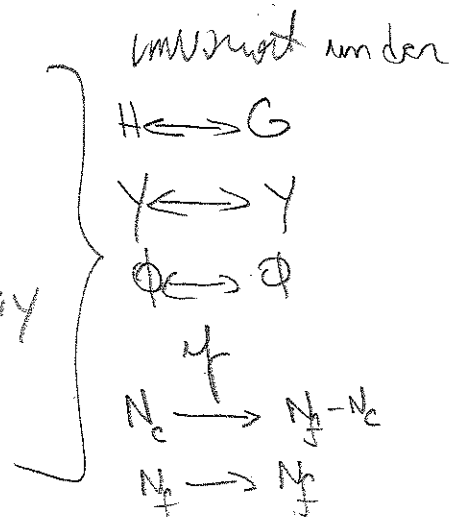 invariant under
H ⟷ G
Y ⟷ Y
Φ ⟷ Φ
if
N_c ⟶ N_f - N_c
N_f ⟶ N_f